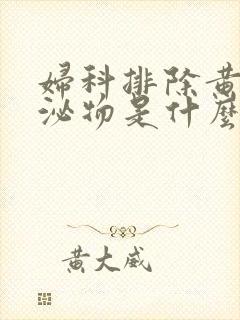 婦科排除黃
泌物是什麼
黃大威